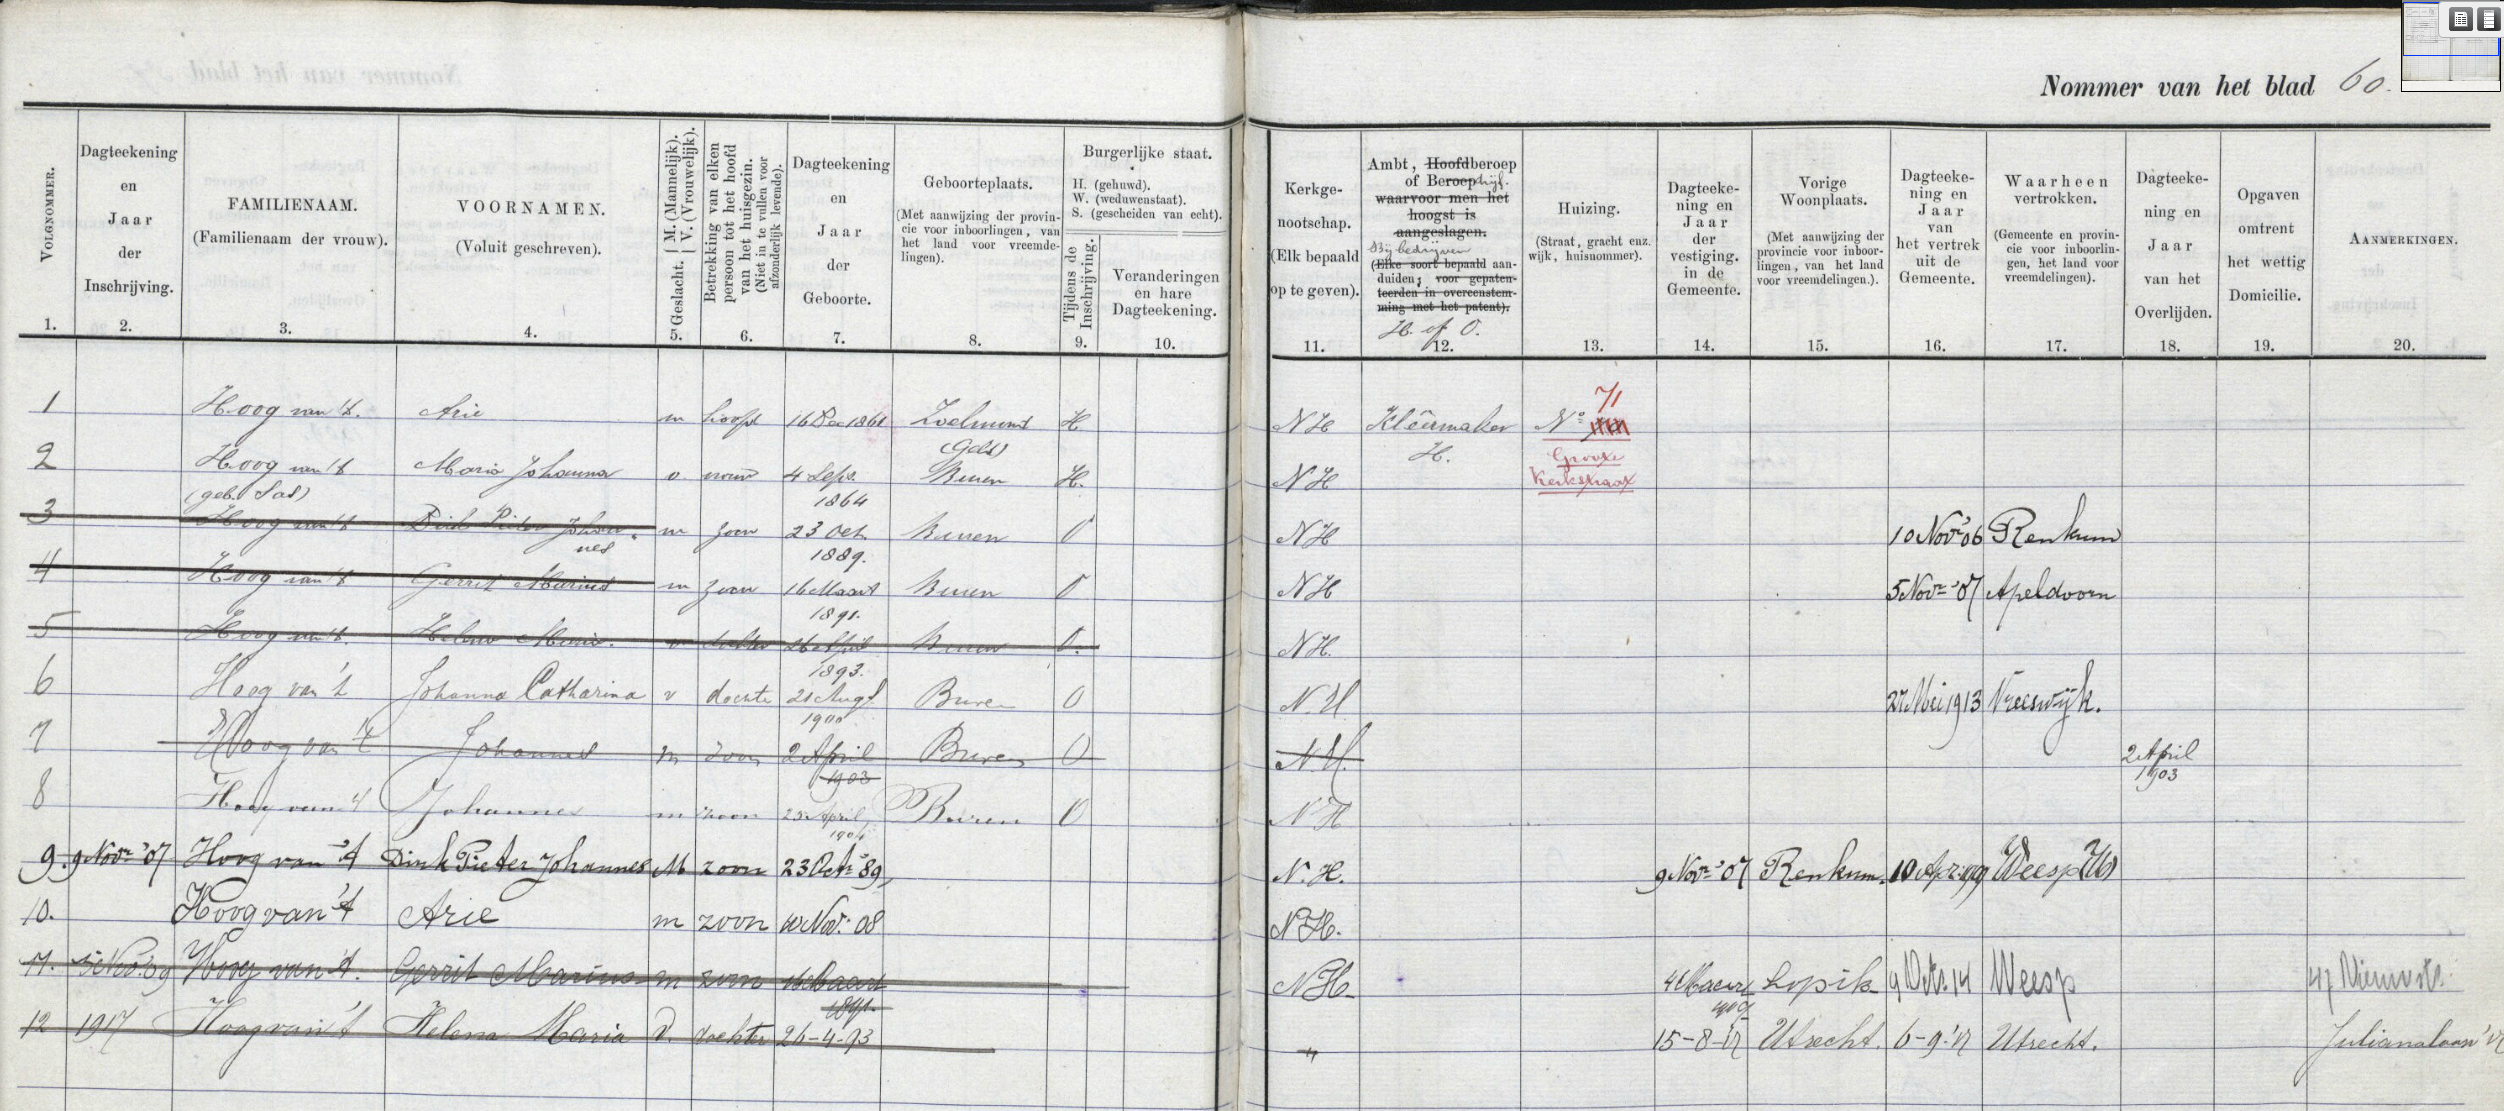 Nommer van het blad 60.
VOLGNOMMER.
1.
Dagteekening
en
Jaar
der
Inschrijving.
2.
FAMILIENAAM.
(Familienaam der vrouw).
3.
VOORNAMEN.
(Voluit geschreven).
4.
Geslacht. { M. (Mannelijk). V. (Vrouwelijk).
5.
Betrekking van elken
persoon tot het hoofd
van het huisgezin.
(Niet in te vullen voor
afzonderlijk levende).
6.
Dagteekening
en
Jaar
der
Geboorte.
7.
Geboorteplaats.
(Met aanwijzing der provin-
cie voor inboorlingen, van
het land voor vreemde-
lingen).
8.
Burgerlijke staat.
H. (gehuwd).
W. (weduwenstaat).
S. (gescheiden van echt).
Tijdens de
Inschrijving.
9.
Veranderingen
en hare
Dagteekening.
10.
Kerkge-
nootschap.
(Elk bepaald
op te geven).
11.
Ambt, Hoofdberoep
of Beroep
waarvoor men het
hoogst is
aangeslagen.
Bij bedrijven
(Elke soort bepaald aan-
duiden; voor gepaten-
teerden in overeenstem-
ming met het patent).
H. of O.
12.
Huizing.
(Straat, gracht enz.
wijk, huisnommer).
13.
Dagteeke-
ning en
Jaar
der
vestiging.
in de
Gemeente.
14.
Vorige
Woonplaats.
(Met aanwijzing der
provincie voor inboor-
lingen, van het land
voor vreemdelingen.).
15.
Dagteeke-
ning en
Jaar
van
het vertrek
uit de
Gemeente.
16.
Waarheen
vertrokken.
(Gemeente en provin-
cie voor inboorlin-
gen, het land voor
vreemdelingen).
17.
Dagteeke-
ning en
Jaar
van het
Overlijden.
18.
Opgaven
omtrent
het wettig
Domicilie.
19.
AANMERKINGEN.
20.
1 Hoog van 't. Arie m hoofd 16 Dec 1861 Zoelmond H NH Kleermaker No 71
(Geld) H. Groote
2 Hoog van 't Maria Johanna v vrouw 4 Sept. Buren H. NH Kerkstraat
(geb. Sas) 1864
3 Hoog van 't Dirk Pieter Johan- m zoon 23 Oct. Buren O NH 10 Nov '06 Renkum
nes 1889.
4 Hoog van 't Gerrit Marinus m zoon 16 Maart Buren O NH 5 Nov '07 Apeldoorn
1891.
5 Hoog van 't. Helena Maria. v dochter 26 April Buren O. NH.
1893.
6 Hoog van 't Johanna Catharina v dochter 21 Aug Buren O N.H. 27 Mei 1913 Vreeswijk.
1900
7 Hoog van 't Johannes m zoon 2 April Buren O N.H. 2 April
1903 1903
8 Hoog van 't Johannes m zoon 23 April Buren O NH
1904
9. 9 Nov '07 Hoog van 't Dirk Pieter Johannes M zoon 23 Oct '89, N.H. 9 Nov '07 Renkum. 10 Apr. '09 Weesp
10. Hoog van 't Arie m zoon 10 Nov. 08 N.H.
11. Hoog van 't. Gerrit Marinus m zoon 16 Maart NH. 4 Maart Lopik 9 Oct. 14 Weesp 47 Nieuwstr.
1891. 1909
12 1917 Hoog van 't Helena Maria V. dochter 26-4-93 " 15-8-17 Utrecht. 6-9-'17 Utrecht. Julianalaan